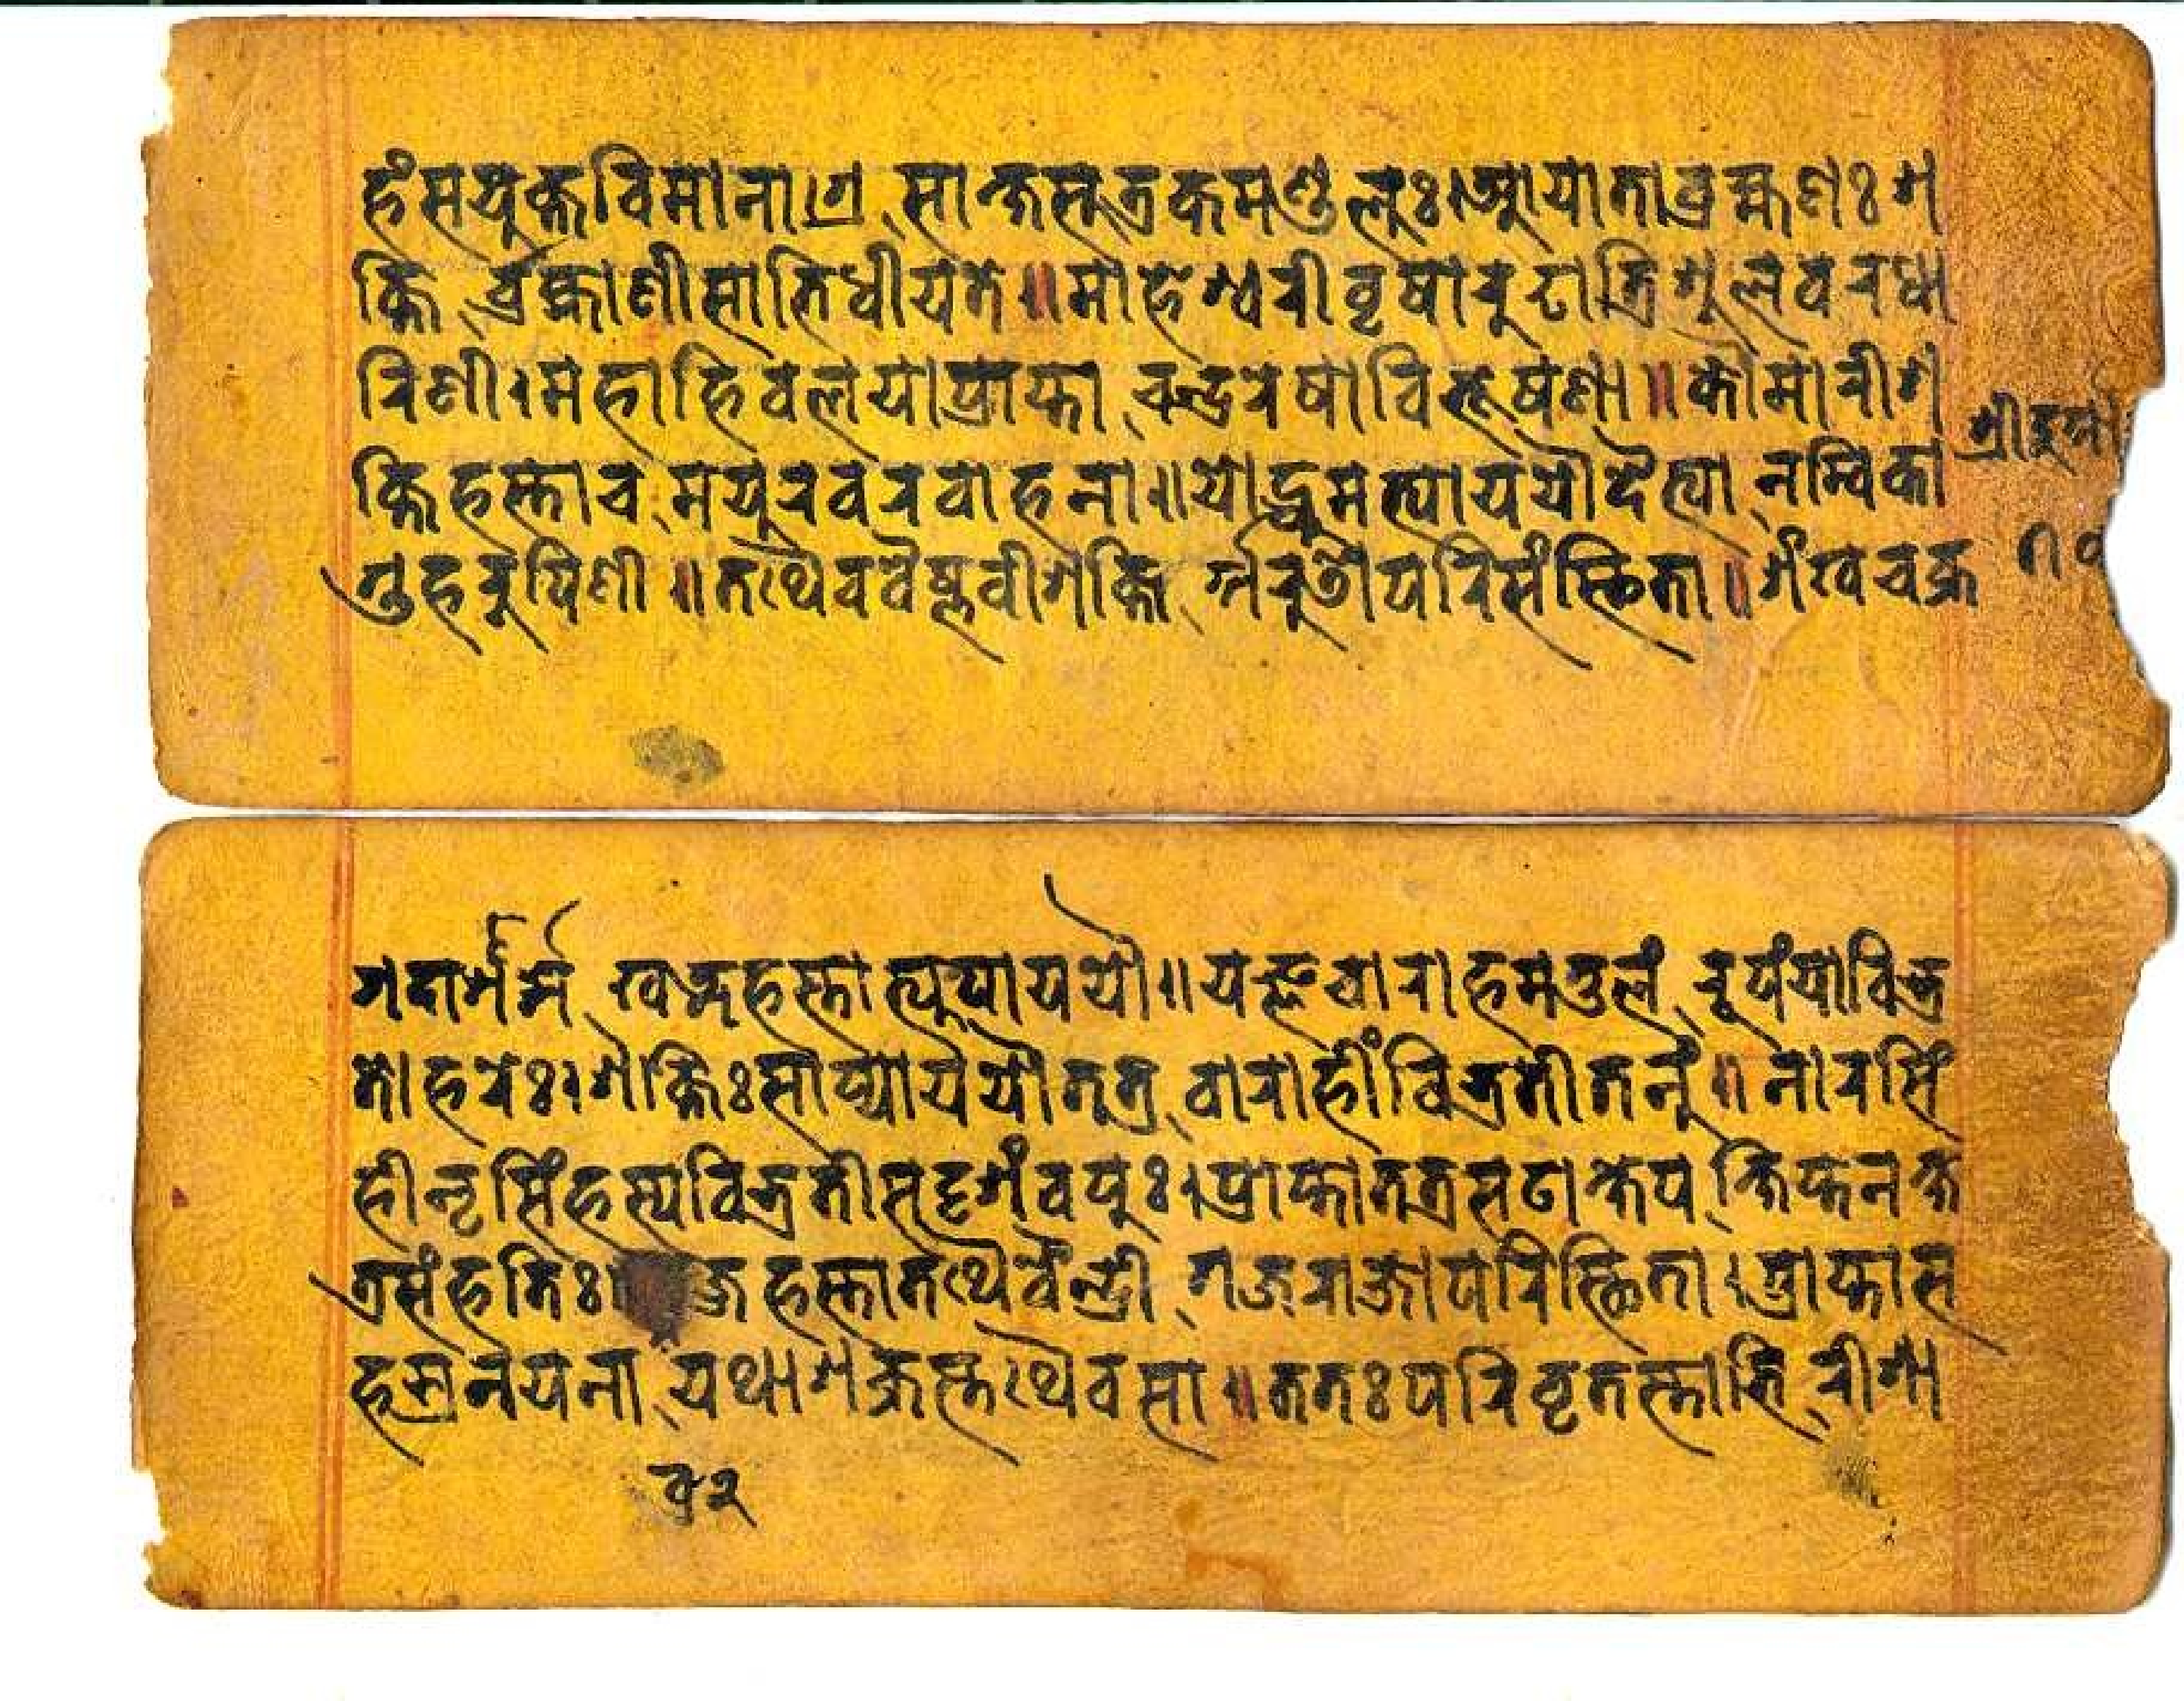 हंसयुक्तविमानाग्रे साक्षसूत्रकमण्डलुः।आयाताब्रह्मणः श
क्ति र्ब्रह्माणीसाभिधीयते॥माहेश्वरीवृषारूढात्रिशूलवरधा
रिणी।महाहिवलयाप्राप्ता चन्द्ररेषाविभूषणा॥कौमारीश
क्तिहस्ताच मयूरवरवाहना॥योद्धुमभ्याययौदैत्या नम्बिका
गुहरूपिणी॥तथैववैष्णवीशक्ति र्गरुडोपरिसंस्थिता॥शंखचक्र
श्रीदुर्गा
गदाशार्ङ्ग खड्गहस्ताभ्युपाययौ॥यज्ञवाराहमतुलं रूपंयाविभ्र
तोहरेः।शक्तिःसाप्याययौतत्र वाराहींविभ्रतीतनुं॥नारसिं
हीनृसिंहस्यविभ्रतीसदृशंवपुः।प्राप्तातत्रसटाक्षेप क्षिप्तनक्ष
त्रसंहतिः॥ ज्रहस्तातथैवैन्द्री गजराजोपरिस्थिता।प्राप्तास
हस्रनयना यथाशक्रस्तथैवसा॥ततःपरिवृतस्ताभि रीशा